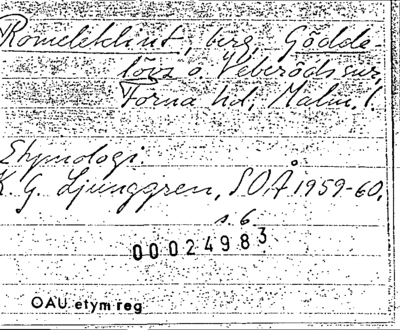 Romeleklint, berg, Gödde-
lövs o. Veberöds snr,
Torna hd, Malm. l.
Etymologi.
K. G. Ljunggren, SOÅ 1959-60,
s. 6
00024983
OAU etym reg